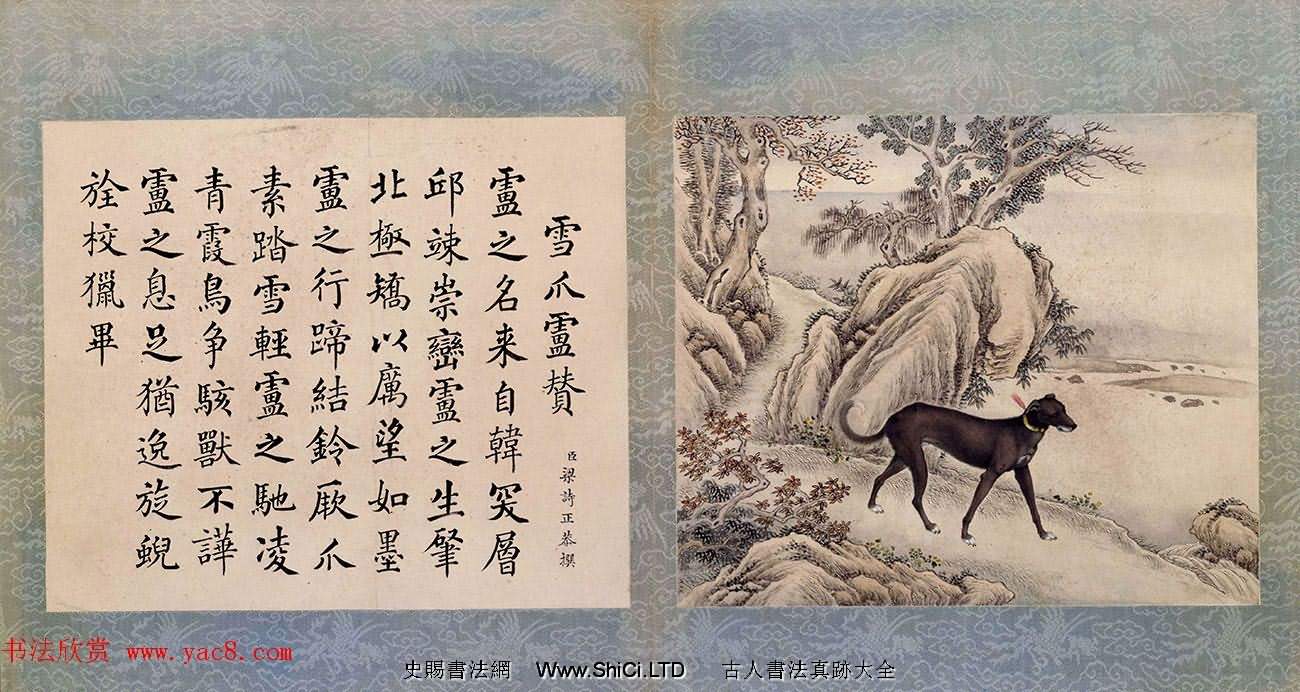 雪爪盧賛
臣梁詩正恭撰
盧之名来自韓突層
邱竦崇巒盧之生肇
北極矯以厲望如墨
盧之行蹄結鈴厥爪
素踏雪輕盧之馳凌
青霞鳥争駭獸不譁
盧之息足猶逸旋蜺
旌校獵畢
书法欣赏 www.yac8.com
史賜書法網 Www.ShiCi.LTD 古人書法真跡大全